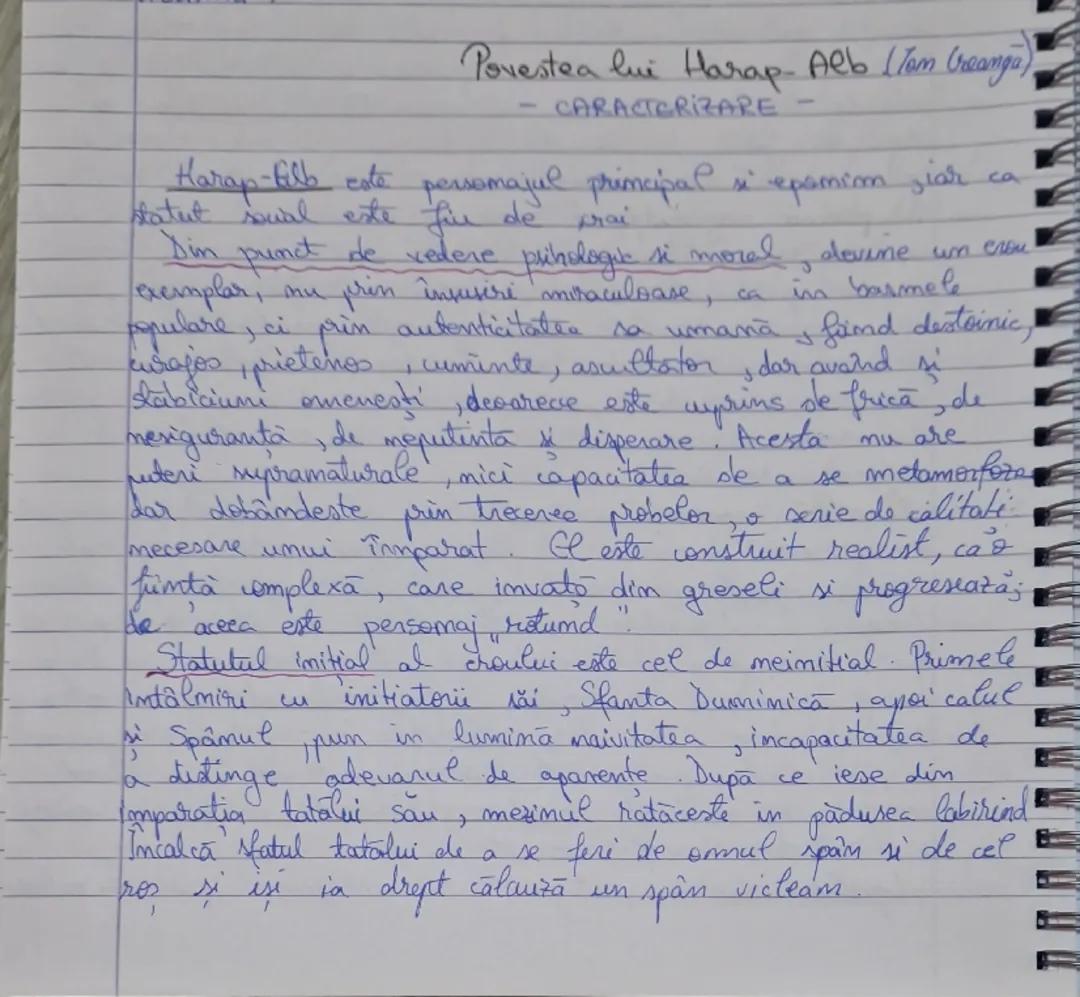 Povestea lui Harap-Alb (Ion Creangă)
- CARACTERIZARE -
Harap-Alb este personajul principal și eponim, iar ca
statut social este fiu de crai
Din punct de vedere psihologic și moral, devine un erou
exemplar, nu prin însușiri miraculoase, ca in basmele
populare, ci prin autenticitatea sa umană, fiind destoinic,
curajos, prietenos, cuminte, ascultator, dar avand și
slăbiciuni omenești, deoarece este cuprins de frică, de
nesiguranță, de neputință și disperare. Acesta nu are
puteri supranaturale, nici capacitatea de a se metamorfoza
dar dobândește prin trecerea probelor, o serie de calități
necesare unui împarat. El este construit realist, ca o
ființă complexă, care invață din greseli si progresează;
de aceea este personaj „rotund".
Statutul inițial al eroului este cel de neinițial. Primele
întâlniri cu inițiatorii săi, Sfanta Duminică, apoi calul
și Spânul, pun in lumină naivitatea, incapacitatea de
a distinge adevarul de aparențe. După ce iese din
împarația tatălui său, mezinul rătăcește in pădurea labirind
Încalcă sfatul tatalui de a se feri de omul spân și de cel
roș și iși ia drept călăuză un spân viclean.